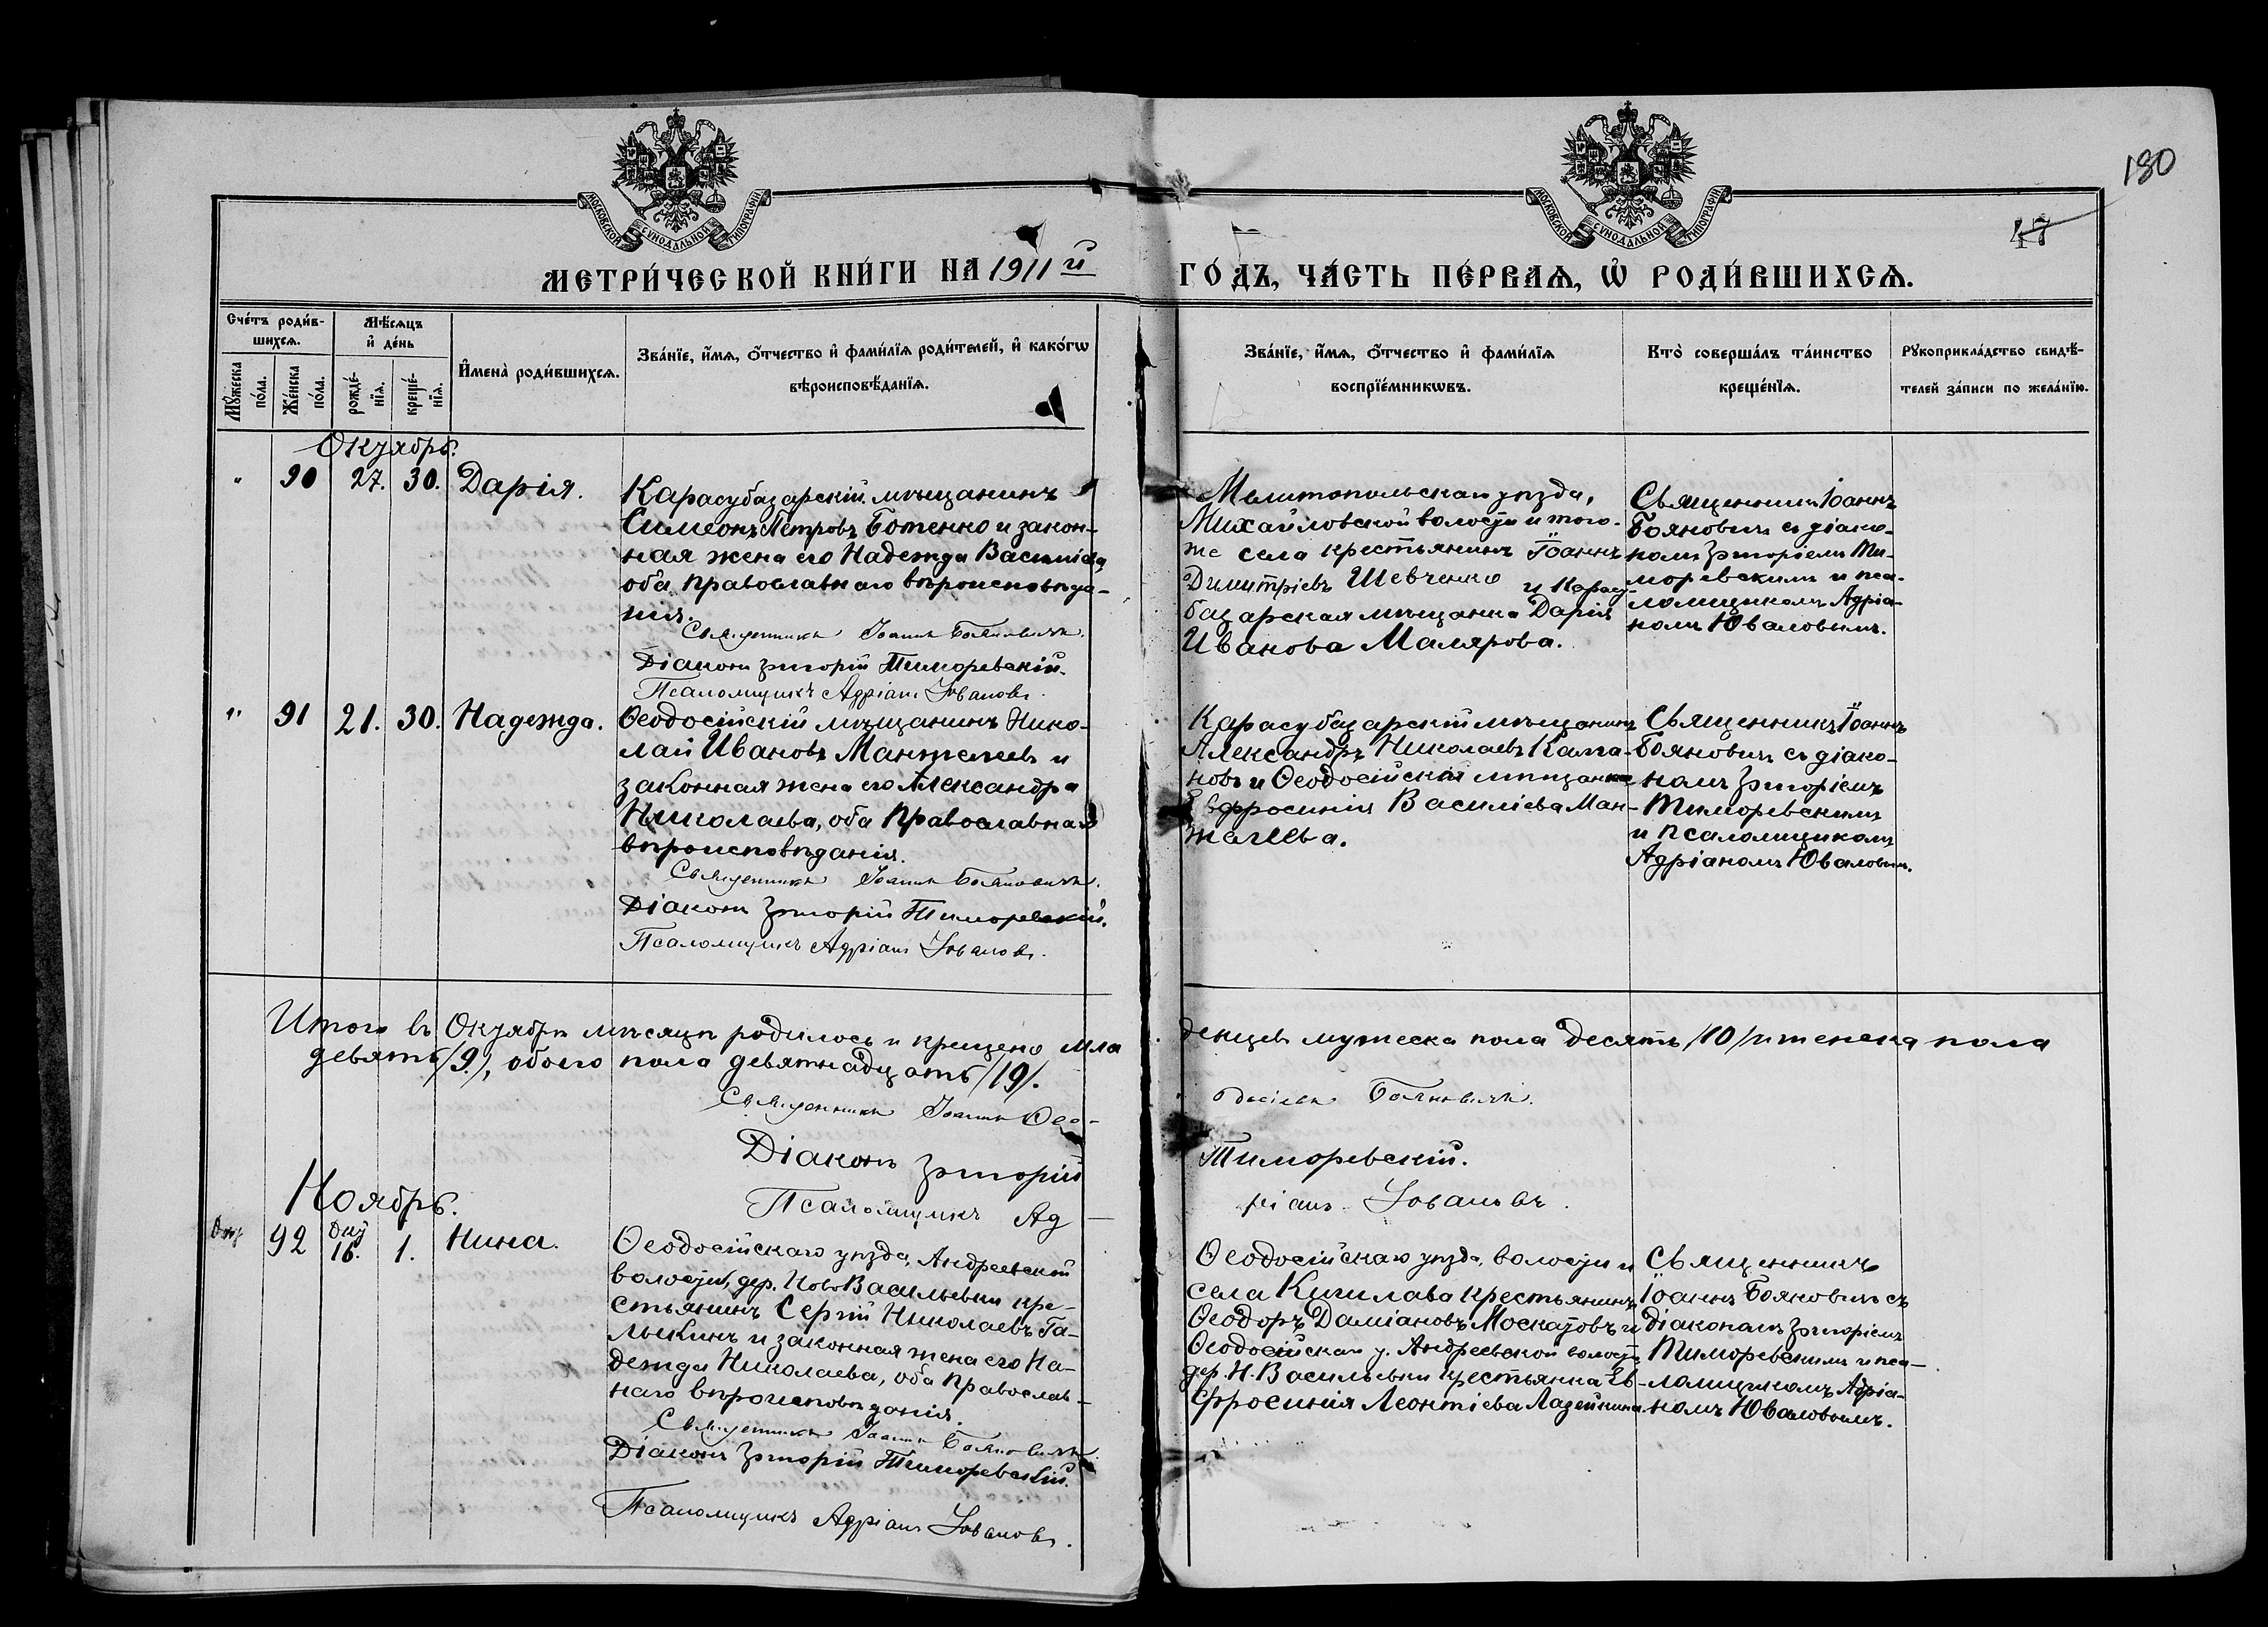 180
47
МОСКОВСКОЙ СѴНОДАЛЬНОЙ ТИПОГРАФІИ
МОСКОВСКОЙ СѴНОДАЛЬНОЙ ТИПОГРАФІИ
МЕТРИ́ЧЕСКОЙ КНИ́ГИ НА 1911 й ГО́ДЪ, ЧА́СТЬ ПЕ́РВАѦ, Ѡ҆ РОДИ́ВШИХСѦ.
Сче́тъ роди́в-
шихсѧ.
Мꙋ́жеска по́ла.
Же́нска по́ла.
Мѣ́сѧцъ
и҆ де́нь
рожде́-
нїѧ.
креще́-
нїѧ.
И҆мена̀ роди́вшихсѧ.
Зва́нїе, и҆́мѧ, ѻ҆́тчество и҆ фами́лїѧ роди́телей, и҆ како́гѡ
вѣроисповѣ́данїѧ.
Зва́нїе, и҆́мѧ, ѻ҆́тчество и҆ фами́лїѧ
воспрїе́мникѡвъ.
Кто̀ соверша́лъ та́инство
креще́нїѧ.
Рꙋкоприкла́дство свидѣ́-
телей за́писи по жела́нїю.
Октябрь.
" 90 27. 30. Дарія.
Карасубазарскій мѣщанинъ
Симеонъ Петровъ Ботенко и закон-
ная жена его Надежда Василіева
оба православнаго вѣроисповѣда-
нія.
Священникъ Іоаннъ Бояновичъ.
Діаконъ Григорій Тиморевскій.
Псаломщикъ Адріанъ Юваловъ.
Мелитопольскаго уѣзда,
Михайловской волости и того-
же села крестьянинъ Іоаннъ
Димитріевъ Шевченко и Карасу-
базарская мѣщанка Дарія
Иванова Малярова.
Священникъ Іоаннъ
Бояновичъ съ діако-
номъ Григоріемъ Ти-
моревскимъ и пса-
ломщикомъ Адріа-
номъ Юваловымъ.
" 91 21. 30. Надежда.
Ѳеодосійскій мѣщанинъ Нико-
лай Ивановъ Мантелеевъ и
законная жена его Александра
Николаева, оба православнаго
вѣроисповѣданія.
Священникъ Іоаннъ Бояновичъ.
Діаконъ Григорій Тиморевскій.
Псаломщикъ Адріанъ Юваловъ.
Карасубазарскій мѣщанинъ
Александръ Николаевъ
и Ѳеодосійская мѣщанка
Евфросинія Василіева Ман-
Священникъ Іоаннъ
Бояновичъ съ діако-
номъ Григоріемъ
Тиморевскимъ
и псаломщикомъ
Адріаномъ Юваловымъ.
Итого въ Октябрѣ мѣсяцѣ родилось и крещено мла денцевъ мужеска пола десять /10/ и женска пола
девять /9/, обоего пола девятнадцать /19/.
Священникъ Іоаннъ Ѳео- досіевъ Бояновичъ.
Діаконъ Григорій Тиморевскій.
Псаломщикъ Ад- ріанъ Юваловъ.
Ноябрь.
92 Окт 16. 1. Нина.
Ѳеодосійскаго уѣзда, Андреевской
волости, дер. Ново Васильевки кре-
стьянинъ Сергій Николаевъ Га-
лыкинъ и законная жена его На-
дежда Николаева, оба православ-
наго вѣроисповѣданія.
Священникъ Іоаннъ Бояновичъ.
Діаконъ Григорій Тиморевскій.
Псаломщикъ Адріанъ Юваловъ.
Ѳеодосійскаго уѣзда, волости и
села крестьянинъ
Ѳеодоръ Даміановъ Москатовъ и
Ѳеодосійскаго у. Андреевской волости
дер. Н. Васильевки крестьянка Ев-
фросинія Леонтіева Ладейкина.
Священникъ
Іоаннъ Бояновичъ съ
діакономъ Григоріемъ
Тиморевскимъ и пса-
ломщикомъ Адріа-
номъ Юваловымъ.